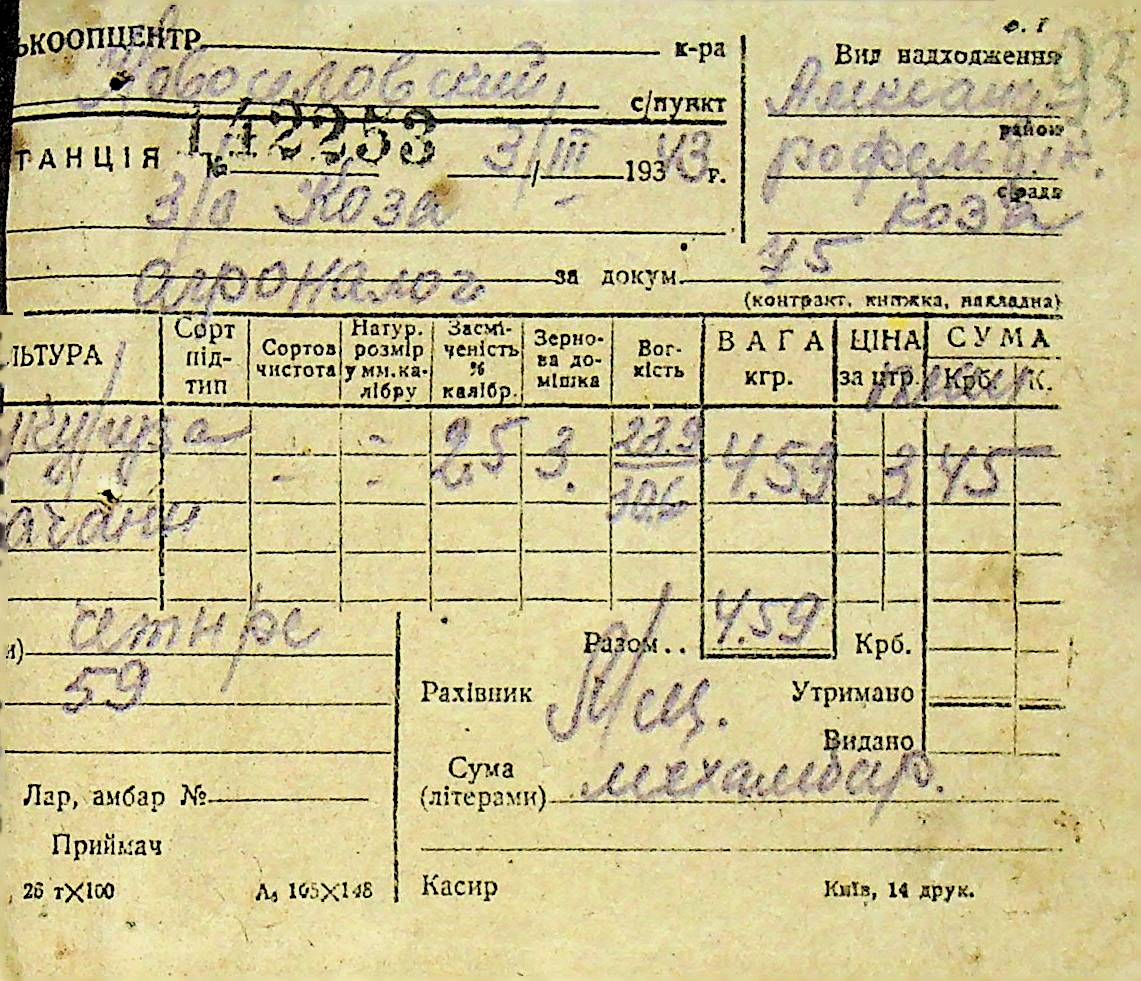 ЬКООПЦЕНТР к-ра
Новоселовский с/пункт
ТАНЦІЯ № 142253 3/III 1943 г.
з/о Коза
агроналог за докум. 45
(контракт, книжка, накладна)
93
Вид надходження
район
с/рада
коза
ЛЬТУРА Сорт під-тип Сортов чистота Натур. розмір у мм. ка-лібру Засмі-ченість % калібр. Зерно-ва до-мішка Вог-кість ВАГА кгр. ЦІНА за цтр. СУМА Крб. К.
кукуруза - - 2.5 3. 23.9 4.59 3. 45
- - 30.6
качани
и) четнре Разом.. 4.59 Крб.
59 Рахівник Утримано
Видано
Сума
Лар, амбар № (літерами) мехамбар.
Приймач
26 т×100 А₅ 105×148 Касир Київ, 14 друк.